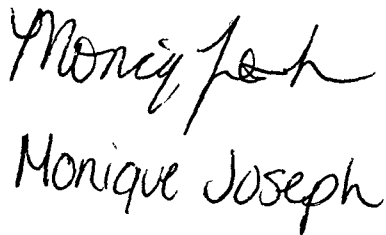 Moniq Joseph
Monique Joseph